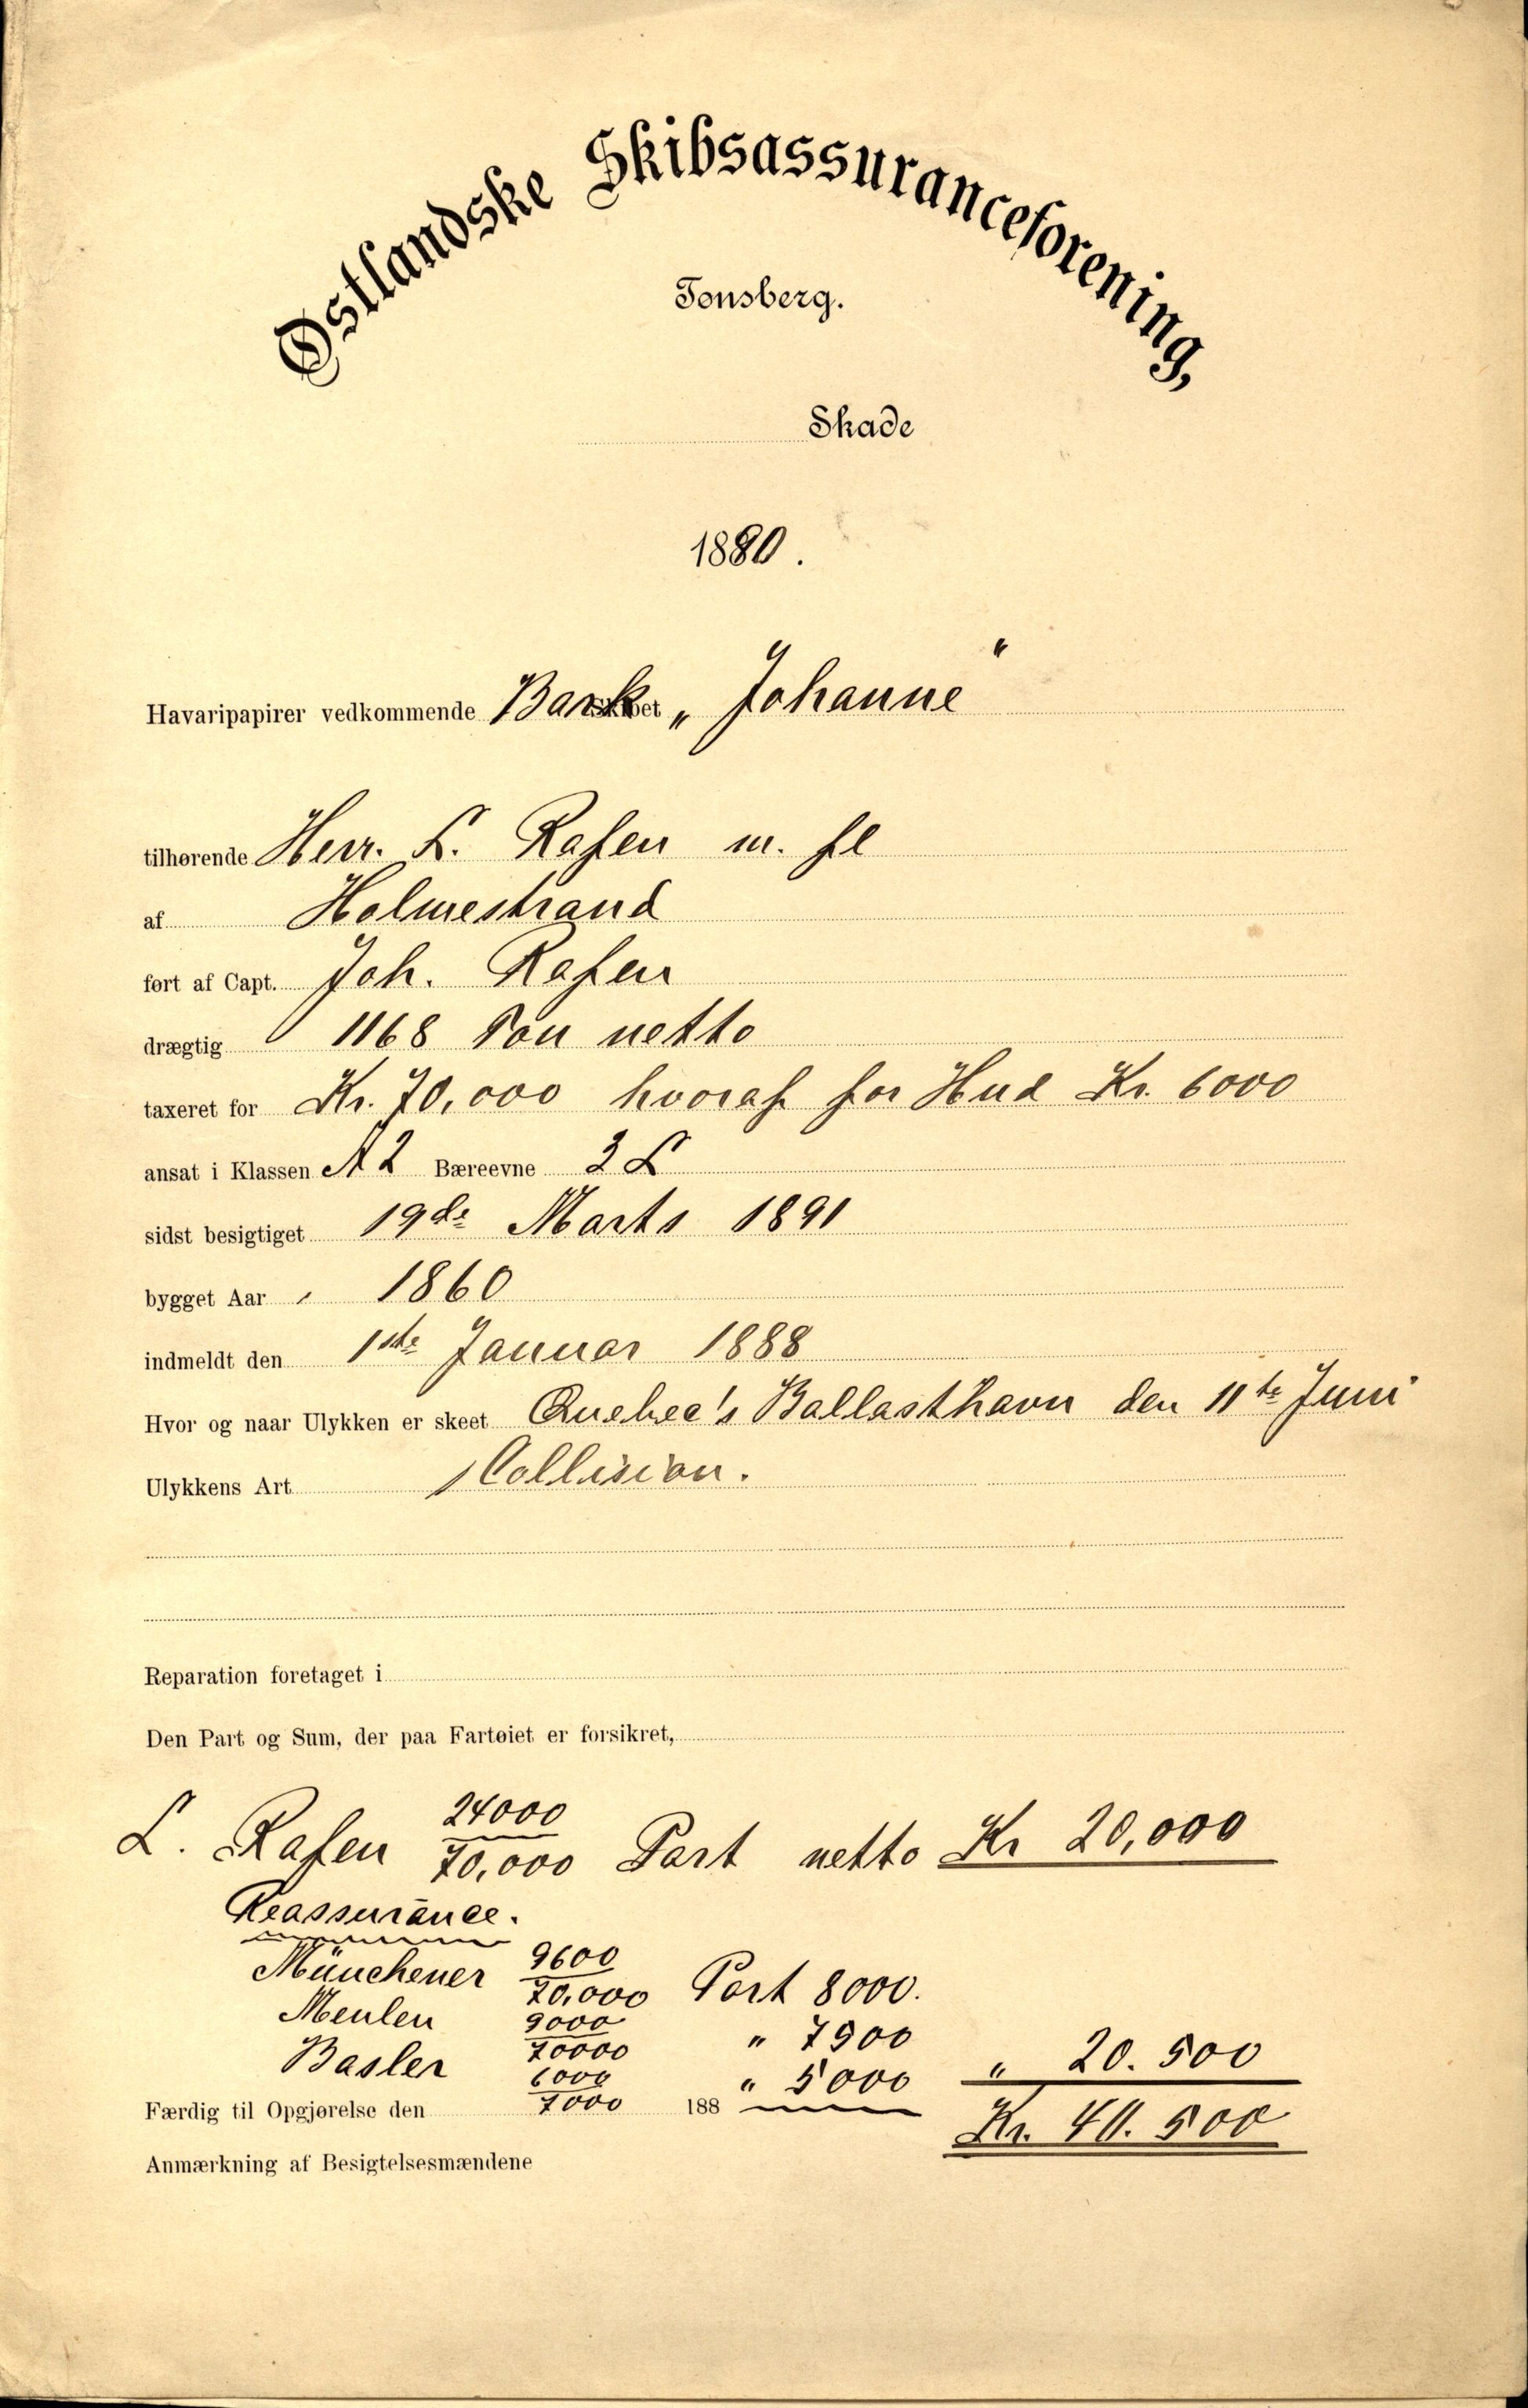 Østlandske Skibsassuranceforening,
Tønsberg.
Skade
1890.
Havaripapirer vedkommende Bark „Johanne“
tilhørende Herr. L. Rafen m. fl
af Holmestrand
ført af Capt. Joh. Rafen
drægtig 1168 Ton netto
taxeret for Kr. 70,000 hvoraf for Hud Kr. 6000
ansat i Klassen A 2 Bæreevne 3 L
sidst besigtiget 19de Marts 1891
bygget Aar 1860
indmeldt den 1ste Januar 1888
Hvor og naar Ulykken er skeet Quebec's Ballasthavn den 11te Juni
Ulykkens Art Collision.
Reparation foretaget i
Den Part og Sum, der paa Fartøiet er forsikret,
L. Rafen 24000/70,000 Part netto Kr 20,000
Reassurance.
Münchener 9600/70,000 Part 8000.
Meulen 9000/70000 " 7500
Basler 6000/7000 " 5000 " 20.500
Færdig til Opgjørelse den 188
Kr. 40.500
Anmærkning af Besigtelsesmændene